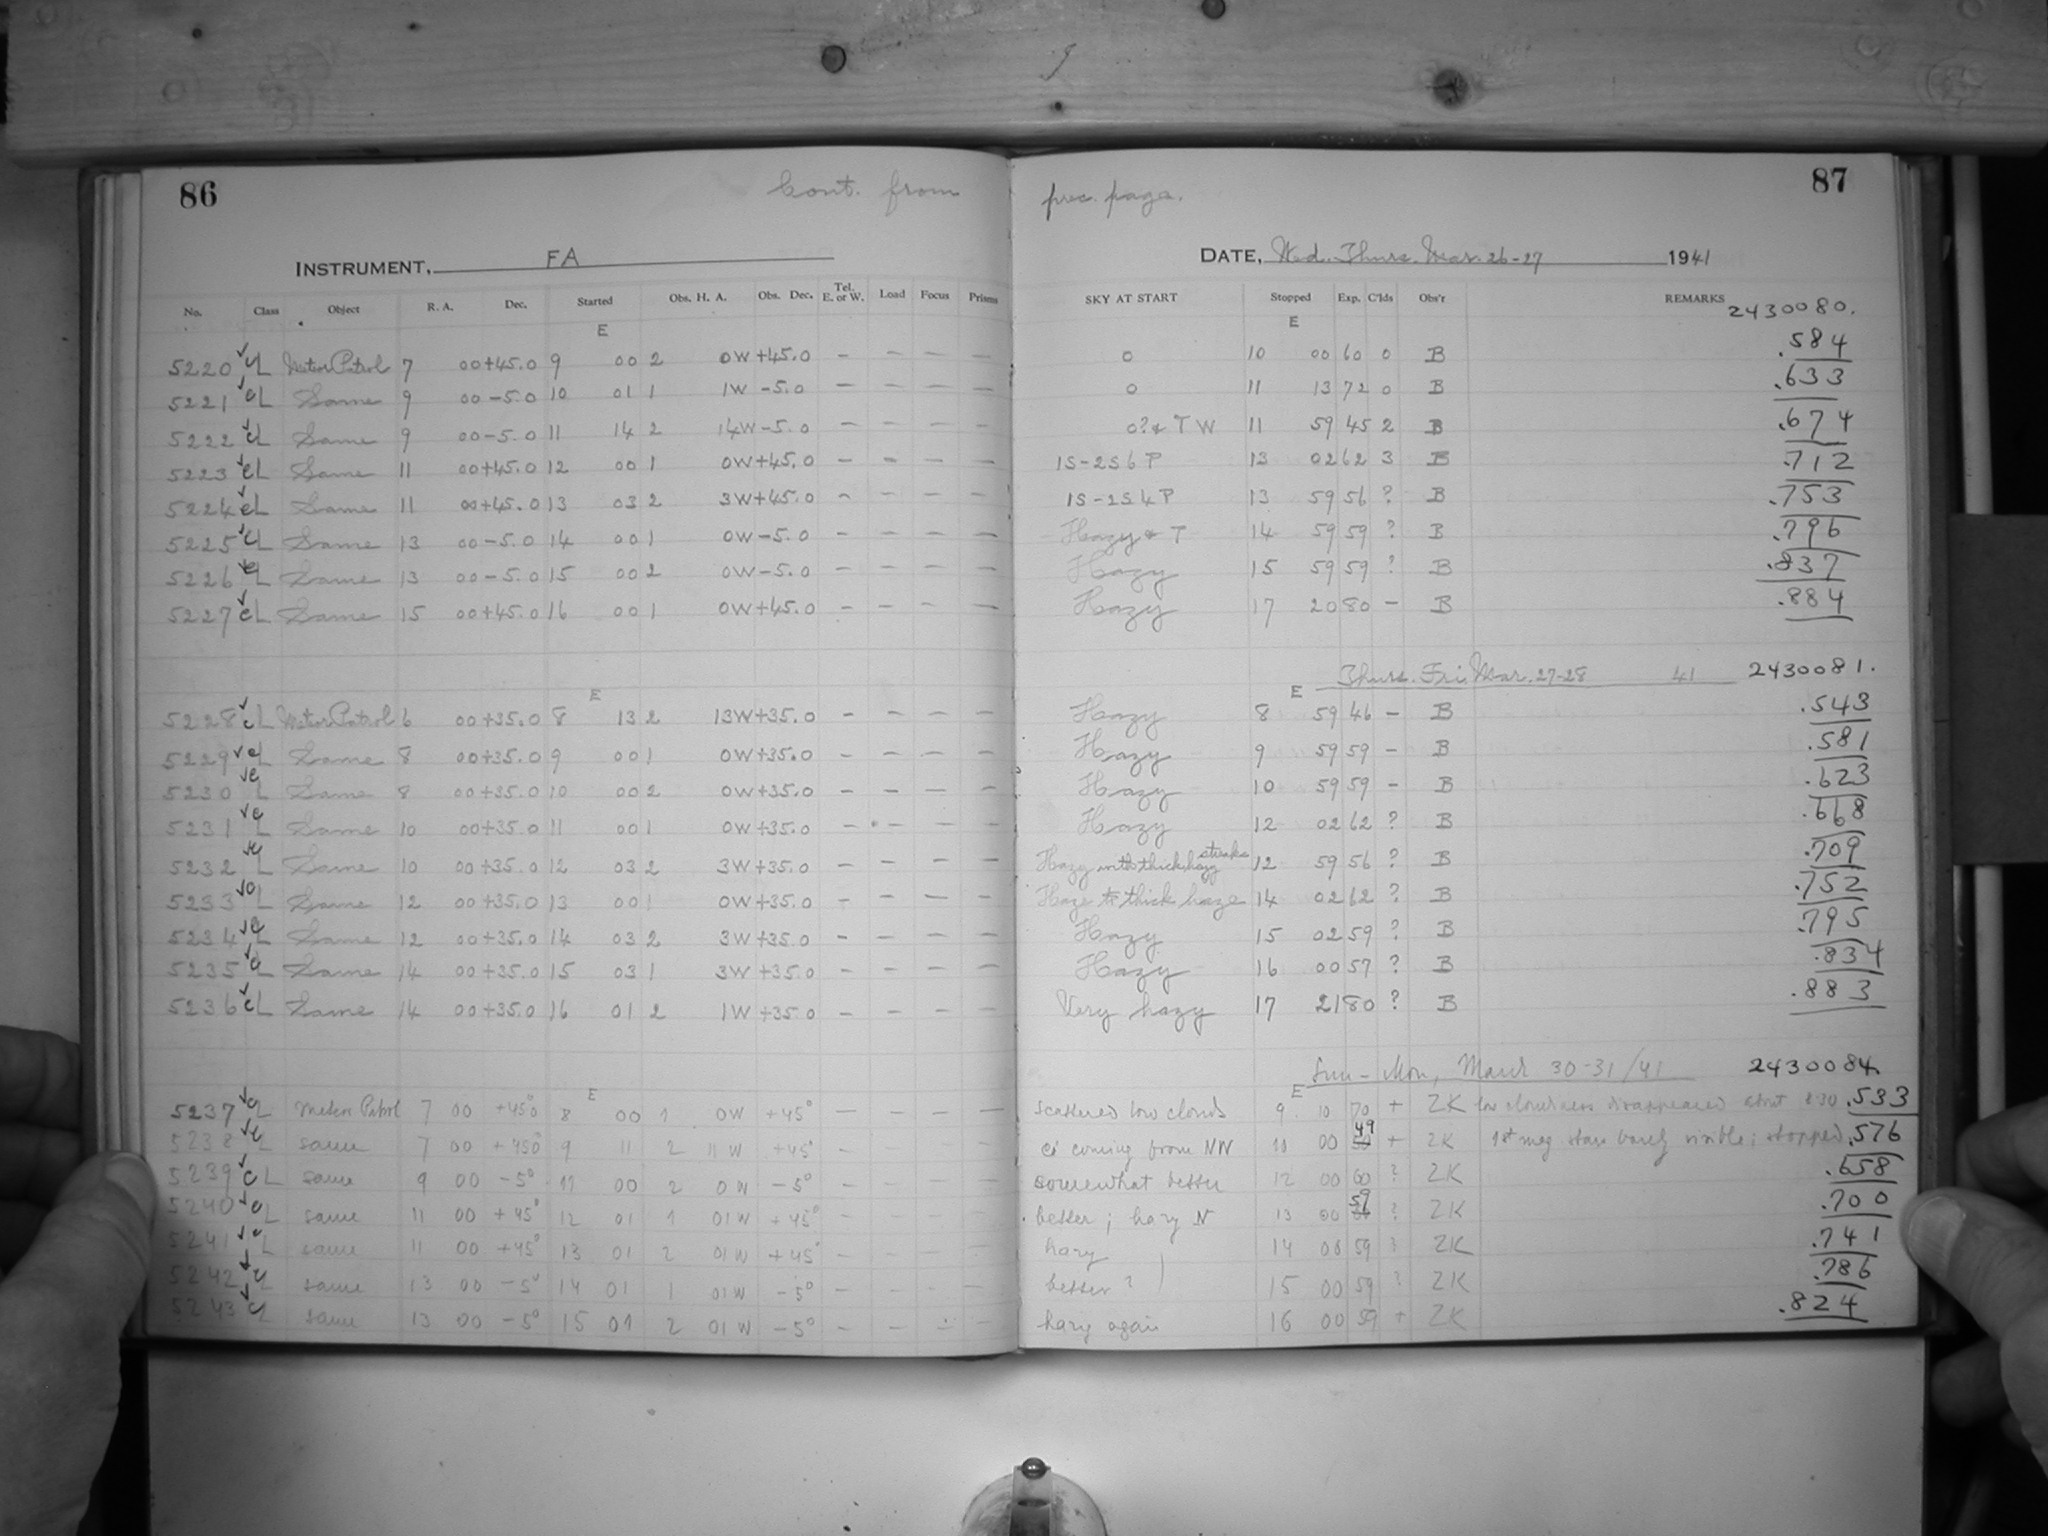 86 Cont. from prec. page. 87
INSTRUMENT, FA DATE, Wed. Thurs. Mar. 26-27 1941
No. Class Object R. A. Dec. Started Obs. H. A. Obs. Dec. Tel. E. or W. Load Focus Prisms SKY AT START Stopped Exp. C'lds Obs'r REMARKS
E E 2430080.
5220 cL Meteor Patrol 7 00 +45.0 9 00 2 0W +45.0 - - - - 0 10 00 60 0 B .584
5221 cL Same 9 00 -5.0 10 01 1 1W -5.0 - - - - 0 11 13 72 0 B .633
5222 cL Same 9 00 -5.0 11 14 2 14W -5.0 - - - - 0? & T W 11 59 45 2 B .674
5223 cL Same 11 00 +45.0 12 00 1 0W +45.0 - - - - 1S-2S6P 13 02 62 3 B .712
5224 cL Same 11 00 +45.0 13 03 2 3W +45.0 - - - - 1S-2S4P 13 59 56 ? B .753
5225 cL Same 13 00 -5.0 14 00 1 0W -5.0 - - - - Hazy & T 14 59 59 ? B .796
5226 cL Same 13 00 -5.0 15 00 2 0W -5.0 - - - - Hazy 15 59 59 ? B .837
5227 cL Same 15 00 +45.0 16 00 1 0W +45.0 - - - - Hazy 17 20 80 - B .884
E E Thurs. Fri. Mar. 27-28 41 2430081.
5228 cL Meteor Patrol 6 00 +35.0 8 13 2 13W +35.0 - - - - Hazy 8 59 46 - B .543
5229 cL Same 8 00 +35.0 9 00 1 0W +35.0 - - - - Hazy 9 59 59 - B .581
5230 cL Same 8 00 +35.0 10 00 2 0W +35.0 - - - - Hazy 10 59 59 - B .623
5231 cL Same 10 00 +35.0 11 00 1 0W +35.0 - - - - Hazy 12 02 62 ? B .668
5232 cL Same 10 00 +35.0 12 03 2 3W +35.0 - - - - Hazy with thick hazy streaks 12 59 56 ? B .709
5233 cL Same 12 00 +35.0 13 00 1 0W +35.0 - - - - Haze to thick haze 14 02 62 ? B .752
5234 cL Same 12 00 +35.0 14 03 2 3W +35.0 - - - - Hazy 15 02 59 ? B .795
5235 cL Same 14 00 +35.0 15 03 1 3W +35.0 - - - - Hazy 16 00 57 ? B .834
5236 cL Same 14 00 +35.0 16 01 2 1W +35.0 - - - - Very hazy 17 21 80 ? B .883
E E Sun - Mon, March 30-31/41 2430084.
5237 cL Meteor Patrol 7 00 +45° 8 00 1 0W +45° - - - - scattered low clouds 9 10 70 + ZK low cloudiness disappeared about 8 30 .533
5238 cL same 7 00 +45° 9 11 2 11W +45° - - - - ci coming from NW 10 00 49 + ZK 1st mag stars barely visible; stopped .576
5239 cL same 9 00 -5° 11 00 2 0W -5° - - - - somewhat better 12 00 60 ? ZK .658
5240 cL same 11 00 +45° 12 01 1 01W +45° - - - - better; hazy N 13 00 59 ? ZK .700
5241 cL same 11 00 +45° 13 01 2 01W +45° - - - - hazy 14 00 59 ? ZK .741
5242 cL same 13 00 -5° 14 01 1 01W -5° - - - - better? 15 00 59 ? ZK .786
5243 cL same 13 00 -5° 15 01 2 01W -5° - - - - hazy again 16 00 59 + ZK .824